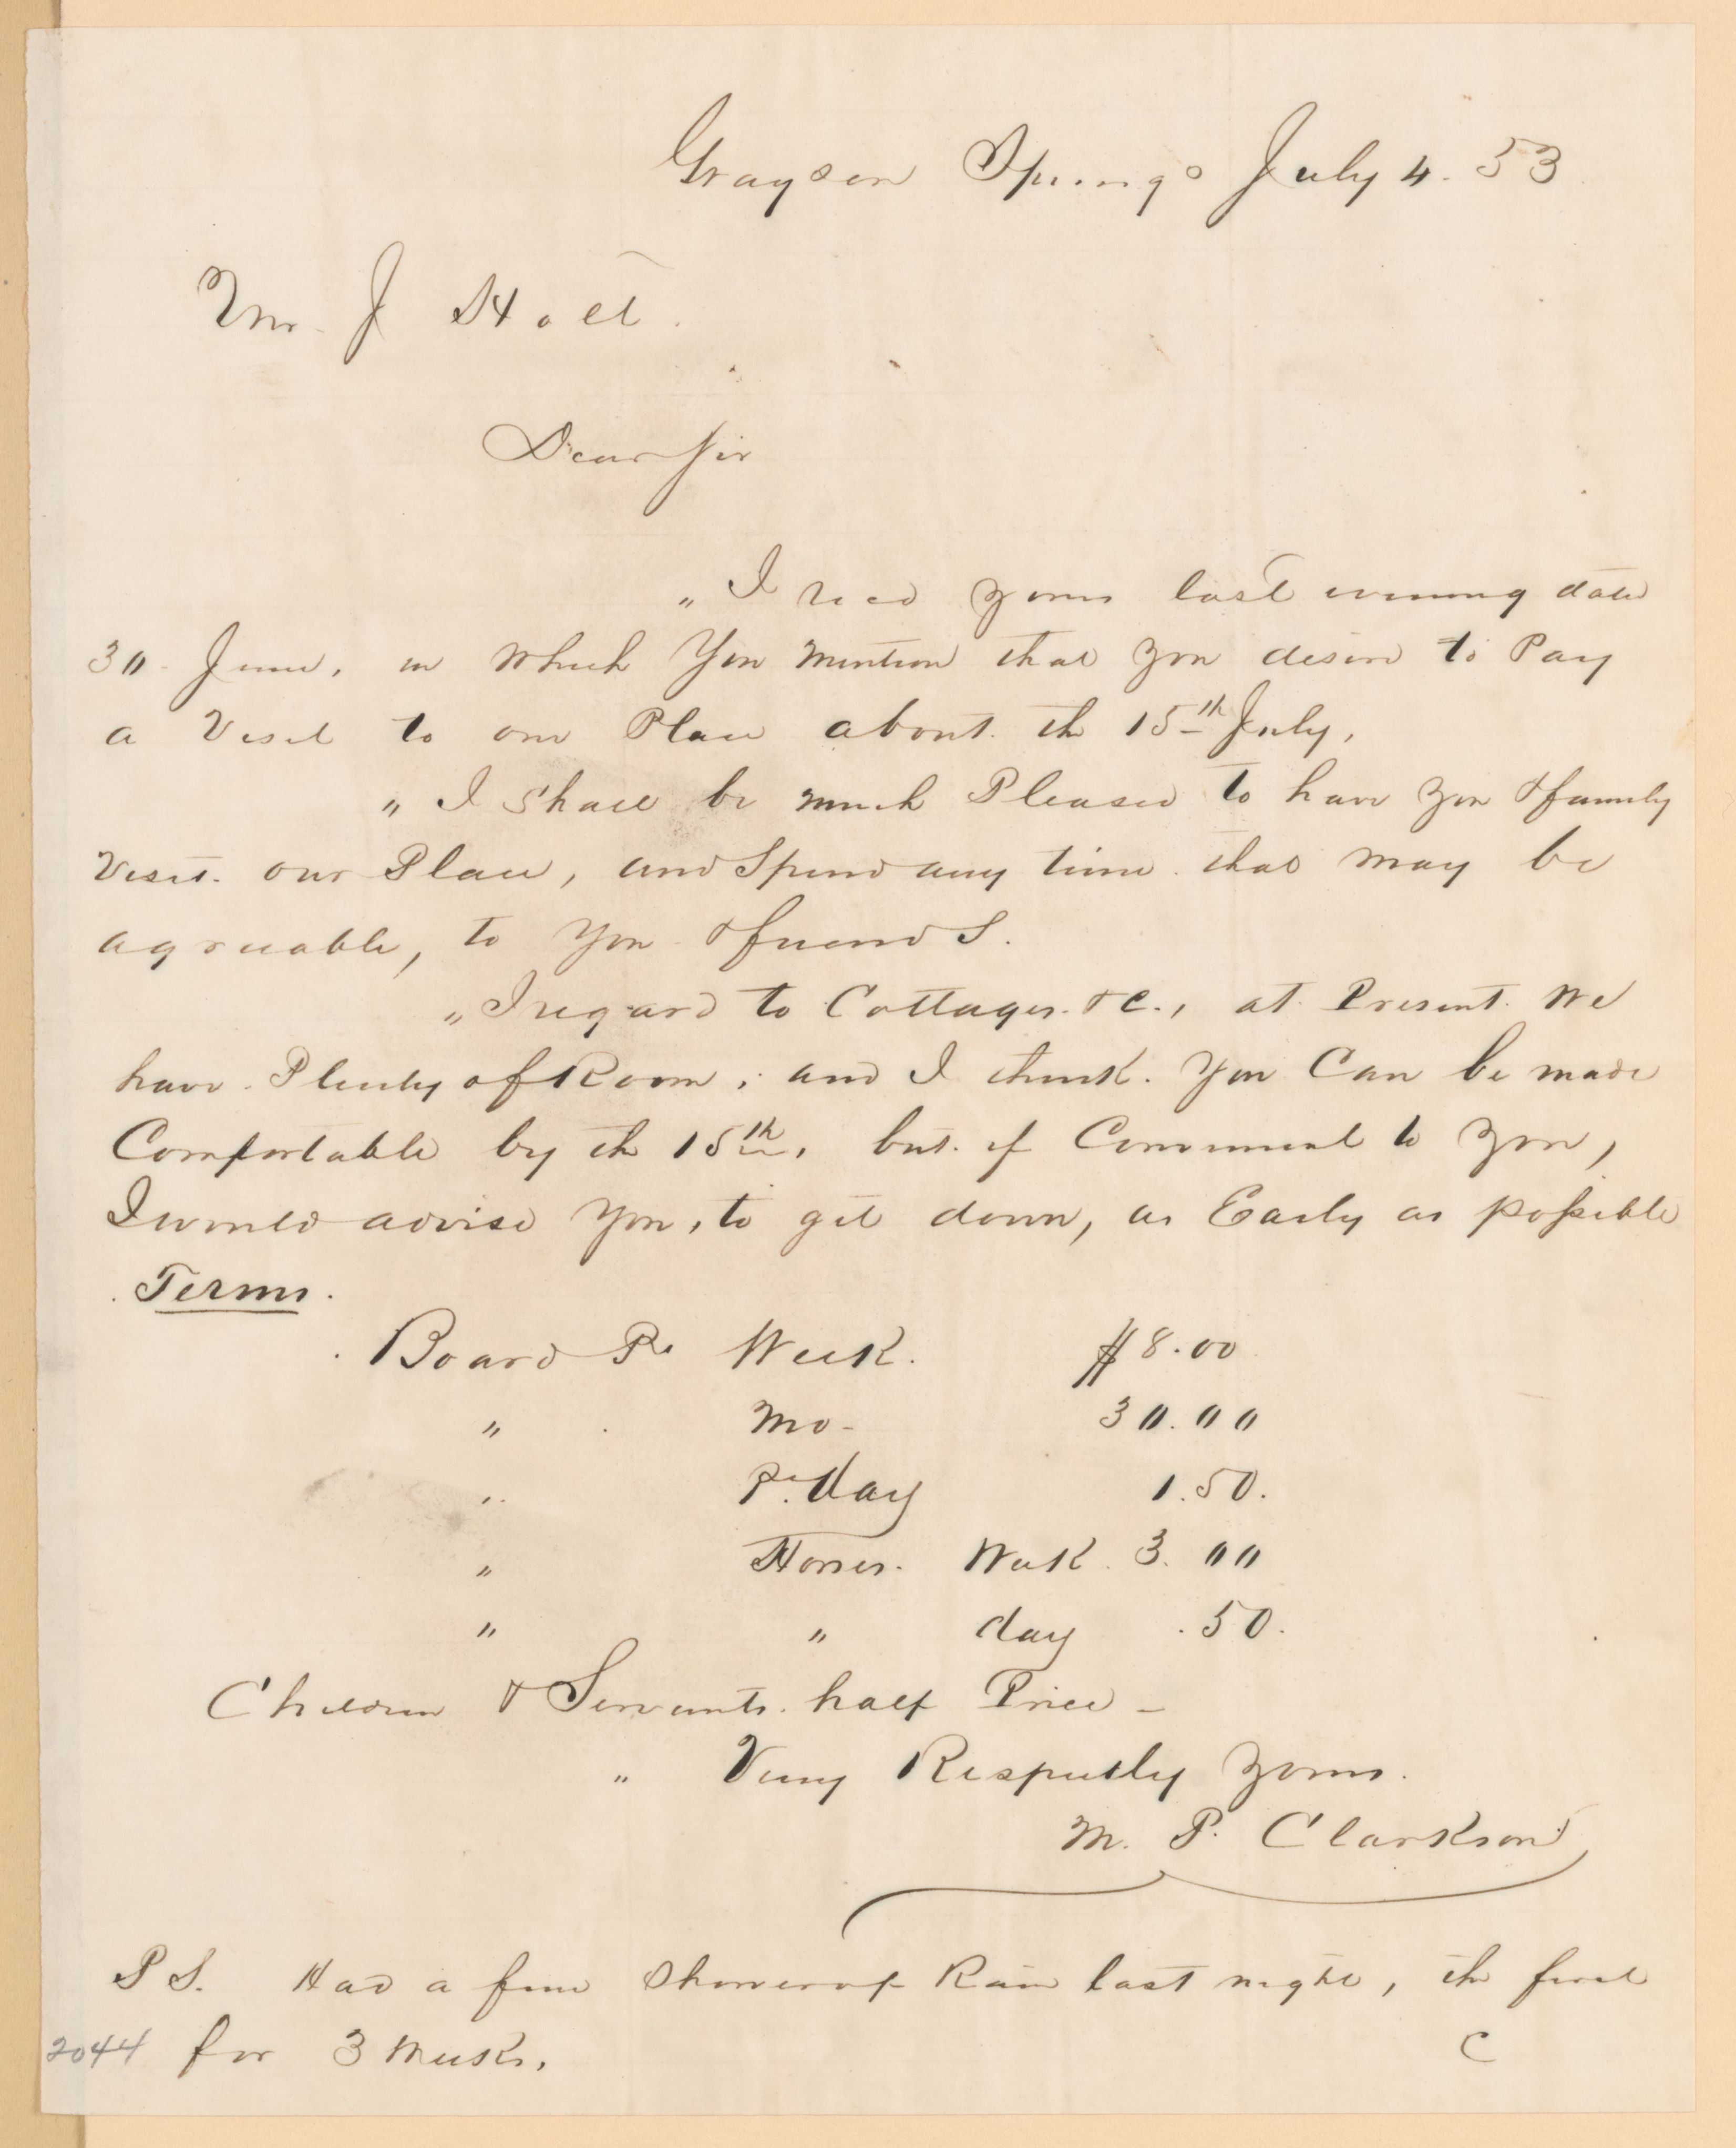 Grayson Springs July 4. 53
Mr. J Holt.
Dear Sir
„ I recd yours last evening date
30 June, in which You mention that you desire to Pay
a Visit to our Place about the 15th July,
„ I Shall be much Pleased to have you & family
Visit. our Place, and Spend any time that may be
agreeable, to you & friends.
„ In regard to Cottages. &c., at Present We
have Plenty of Room, and I think. you Can be made
Comfortable by the 15th, but. if Convenient to you,
I would advise you, to get down, as Early as possible
Terms.
Board Pr Week. $8.00
„ Mo- 30.00
„ Pr. day 1.50.
„ Horses. Week 3.00
„ „ day .50.
Children & Servants. half Price -
„ Very Respectly yours.
M. P. Clarkson
P S. Had a fine Shower of Rain last night, the first
2044 for 3 Weeks. C